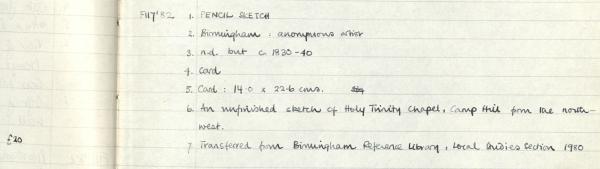 F117'82 1. PENCIL SKETCH
2. Birmingham : anonymous artist
3. n.d. but c. 1830-40
4. Card
5. Card : 14.0 x 22.6 cms.
6. An unfinished sketch of Holy Trinity Chapel, Camp Hill from the north-
west.
£20
7. Transferred from Birmingham Reference Library, Local Studies Section 1980